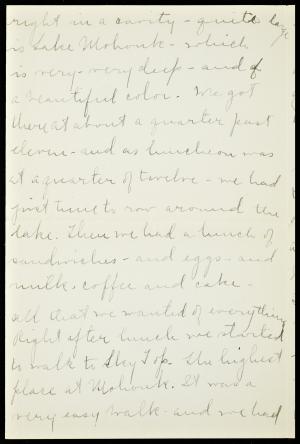 right in a cavity - quite large
is Lake Mohonk - which
is very - very deep - and of
a beautiful color. We got
there at about a quarter past
eleven - and as luncheon was
at a quarter of twelve - we had
just time to row around the
lake. Then we had a lunch of
sandwiches - and eggs - and
milk, coffee and cake -
all that we wanted of everything
Right after lunch we started
to walk to Sky Top. The highest
place at Mohonk. It was a
very easy walk - and we had